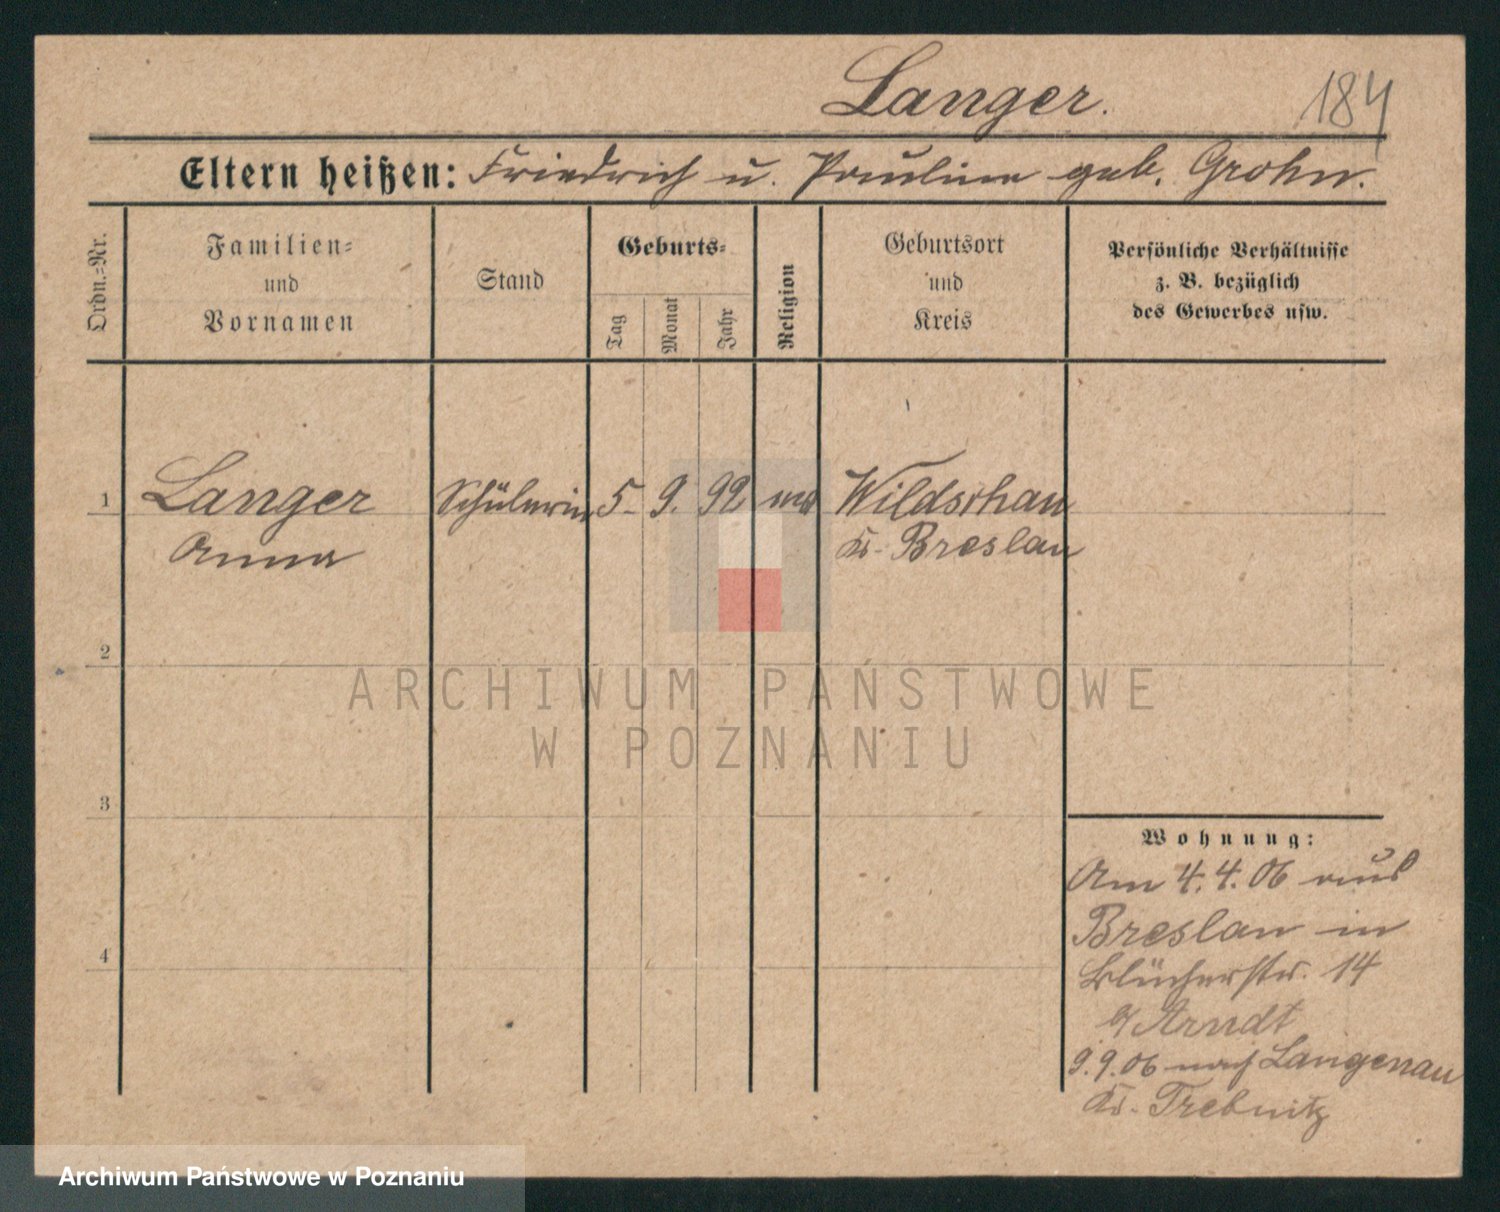 Langer. 184
Eltern heißen: Friedrich u. Pauline geb. Grohn.
Ordn.-Nr.
Familien-
und
Vornamen
Stand
Geburts-
Tag
Monat
Jahr
Religion
Geburtsort
und
Kreis
Persönliche Verhältnisse
z. B. bezüglich
des Gewerbes usw.
1 Langer Schülerin 5. 9. 92 Wildschau
Anna Kr. Breslau
2
ARCHIWUM PAŃSTWOWE
W POZNANIU
3
Wohnung:
Am 4.4.06 aus
Breslau in
4
Blücherstr. 14
b/ Arndt
9.9.06 nach Langenau
Kr. Trebnitz
Archiwum Państwowe w Poznaniu